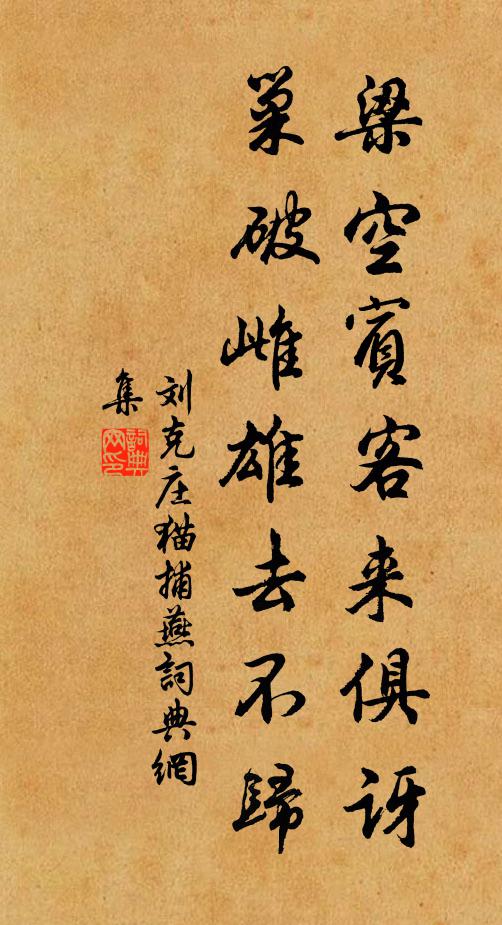 梁空賓客来俱訝
巢破雌雄去不歸
刘克庄猫捕燕詞典網
集
詞典网印